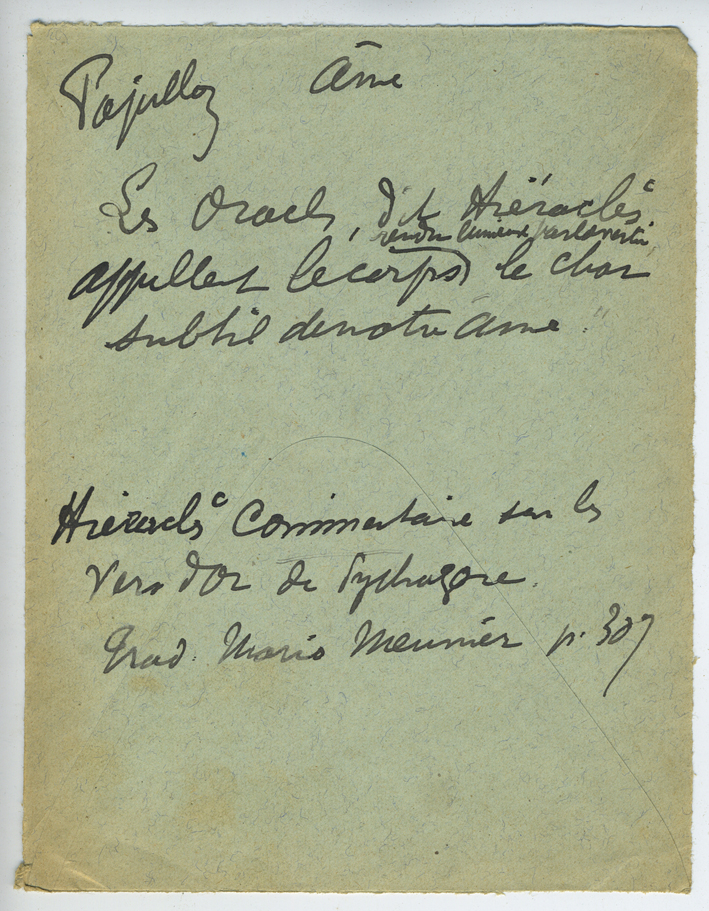 Papillon
Âme
Les Oracles, dit Hiéroclès
rendu lumineux par la vertu
appellent le corps le char
subtil de notre âme."
Hiéroclès Commentaire sur les
Vers d'Or de Pythagore.
Trad. Mario Meunier p. 307